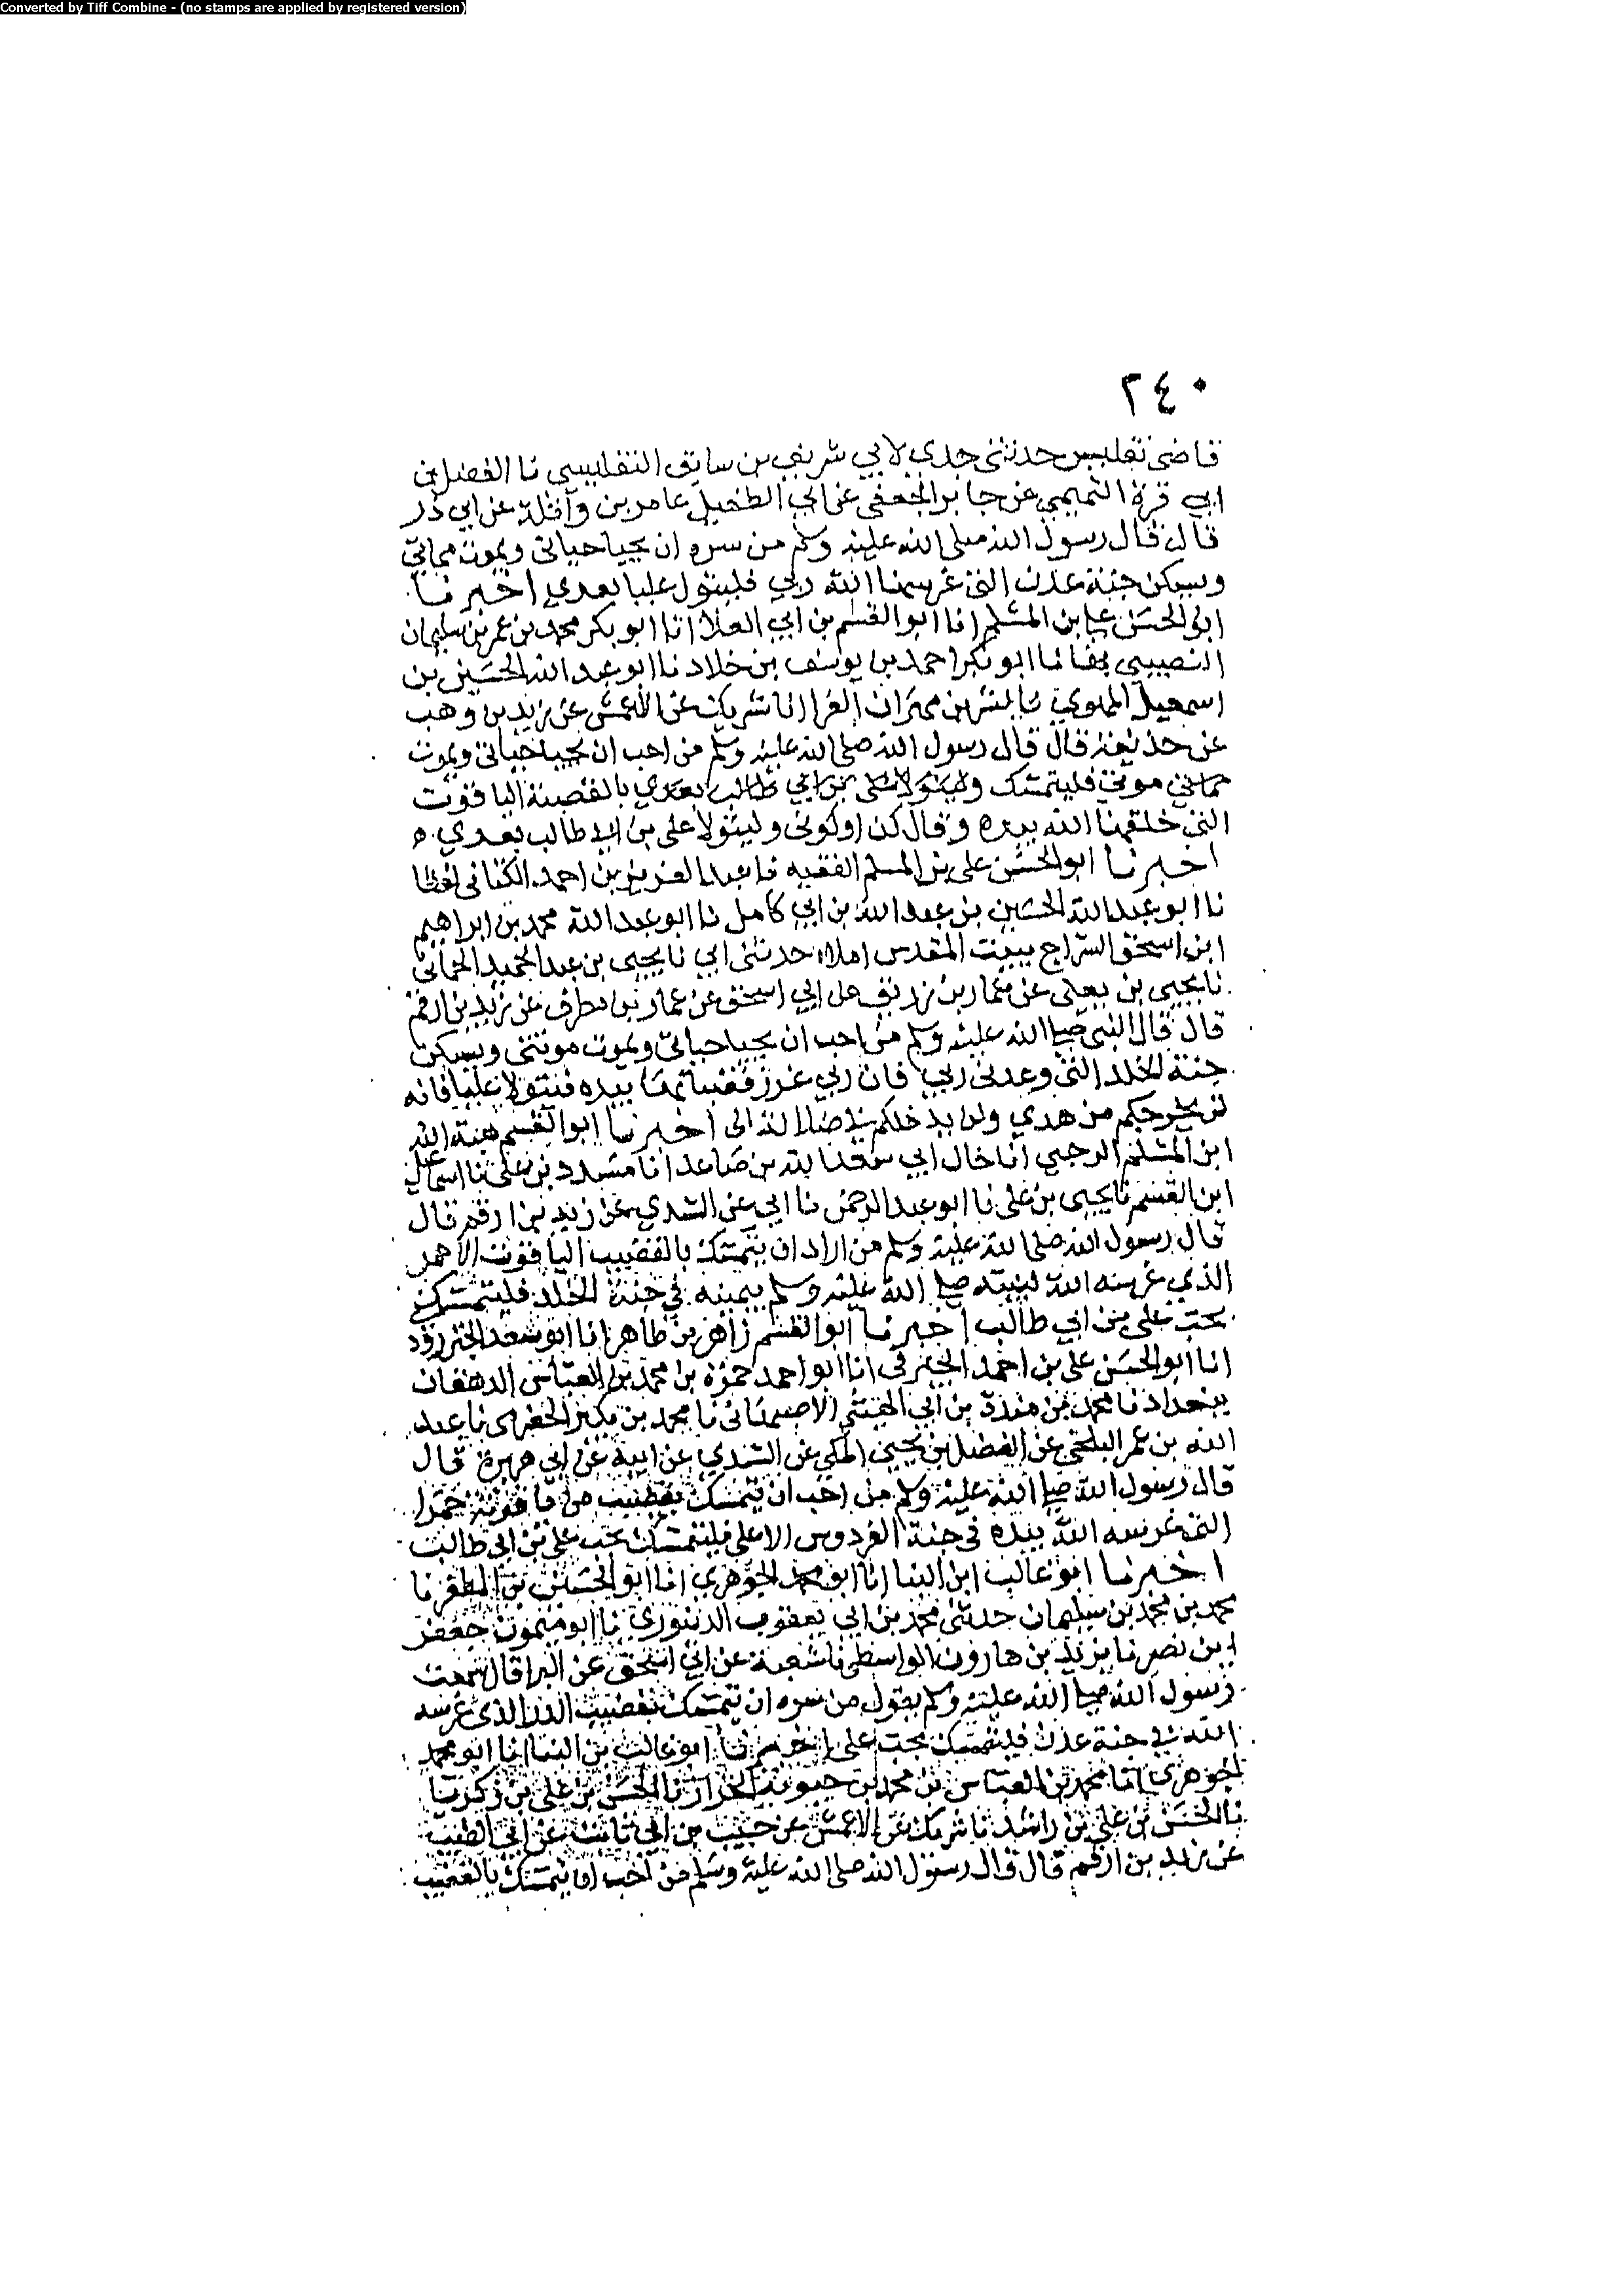 Converted by Tiff Combine - (no stamps are applied by registered version)
٢٤٠
قاضي تفليس حدثني جدي لابي شريف بن سابق التفليسي نا الفضل بن
ابي قرة التميمي عن جابر الجعفي عن ابي الطفيل عامر بن واثلة عن ابي ذر
قال قال رسول الله صلى الله عليه وسلم من سره ان يحيا حياتي ويموت مماتي
ويسكن جنة عدن التي غرسها الله ربي فليتول عليا بعدي اخبرنا
ابو الحسن علي بن المسلم انا ابو القسم بن ابي العلا انا ابو بكر محمد بن عمر بن سليمان
النصيبي بها نا ابو بكر احمد بن يوسف بن خلاد نا ابو عبد الله الحسين بن
اسمعيل المهري نا بشر بن مهران الفرا نا شريك عن الاعمش عن زيد بن وهب
عن حذيفة قال قال رسول الله صلى الله عليه وسلم من احب ان يحيا حياتي ويموت
موتي فليتمسك بالقصبة الياقوت
التي خلقها الله بيده وقال كن او كوني وليتولا علي بن ابي طالب بعدي ه
اخبرنا ابو الحسن علي بن المسلم الفقيه نا عبد العزيز بن احمد الكتاني لفظا
نا ابو عبد الله الحسين بن عبد الله بن ابي كامل نا ابو عبد الله محمد بن ابراهيم
ابن اسحق السراج ببيت المقدس املاء حدثني ابي نا يحيى بن عبد الحميد الحماني
نا يحيى بن يعلى عن عمار بن زريق عن ابي اسحق عن عمار بن مطرف عن زيد بن ارقم
قال قال النبي صلى الله عليه وسلم من احب ان يحيا حياتي ويموت موتتي ويسكن
جنة الخلد التي وعدني ربي فان ربي غرز قضباتها بيده فليتولا عليا فانه
لن يخرجكم من هدي ولن يدخلكم في ضلالة الى اخبرنا ابو القسم هبة الله
ابن المسلم الرحبي انا خال ابي سعد الله بن صاعد انا مسدد بن علي نا اسماعيل
ابن القسم نا يحيى بن علي نا ابو عبد الرحمن نا ابي عن السدي عن زيد بن ارقم قال
قال رسول الله صلى الله عليه وسلم من اراد ان يتمسك بالقضيب الياقوت الاحمر
الذي غرسه الله لنبيه صلى الله عليه وسلم بيمينه في جنة الخلد فليتمسك
بحب علي بن ابي طالب اخبرنا ابو القسم زاهر بن طاهر انا ابو سعد الجنزرودي
انا ابو الحسن علي بن احمد الحيرفي انا ابو احمد حمزة بن محمد بن العباس الدهقان
ببغداد نا محمد بن مندة بن ابي الهيثم الاصبهاني نا محمد بن بكير الحضرمي نا عبد
الله بن عمر البلخي عن الفضل بن يحيى المكي عن السدي عن ابيه عن ابي هريرة قال
قال رسول الله صلى الله عليه وسلم من احب ان يتمسك بقضيب من ياقوتة حمرا
التي غرسه الله بيده في جنة الفردوس الاعلى فليتمسك بحب علي بن ابي طالب
اخبرنا ابو غالب ابن البنا انا ابو محمد الجوهري انا ابو الحسين بن المظفر نا
محمد بن محمد بن سليمان حدثني محمد بن ابي يعقوب الدينوري نا ابو ميمون جعفر
ابن نصر نا يزيد بن هارون الواسطي نا شعبة عن ابي اسحق عن البرا قال سمعت
رسول الله صلى الله عليه وسلم يقول من سره ان يتمسك بقضيب الدر الذي غرسه
الله في جنة عدن فليتمسك بحب علي اخبرنا ابو غالب بن البنا انا ابو محمد
الجوهري انا محمد بن العباس بن محمد بن حيوية الخزاز نا الحسن بن علي بن زكريا
نا الحسن بن علي بن راشد نا شريك عن الاعمش عن حبيب بن ابي ثابت عن ابي الطفيل
عن زيد بن ارقم قال قال رسول الله صلى الله عليه وسلم من احب ان يتمسك بالقضيب